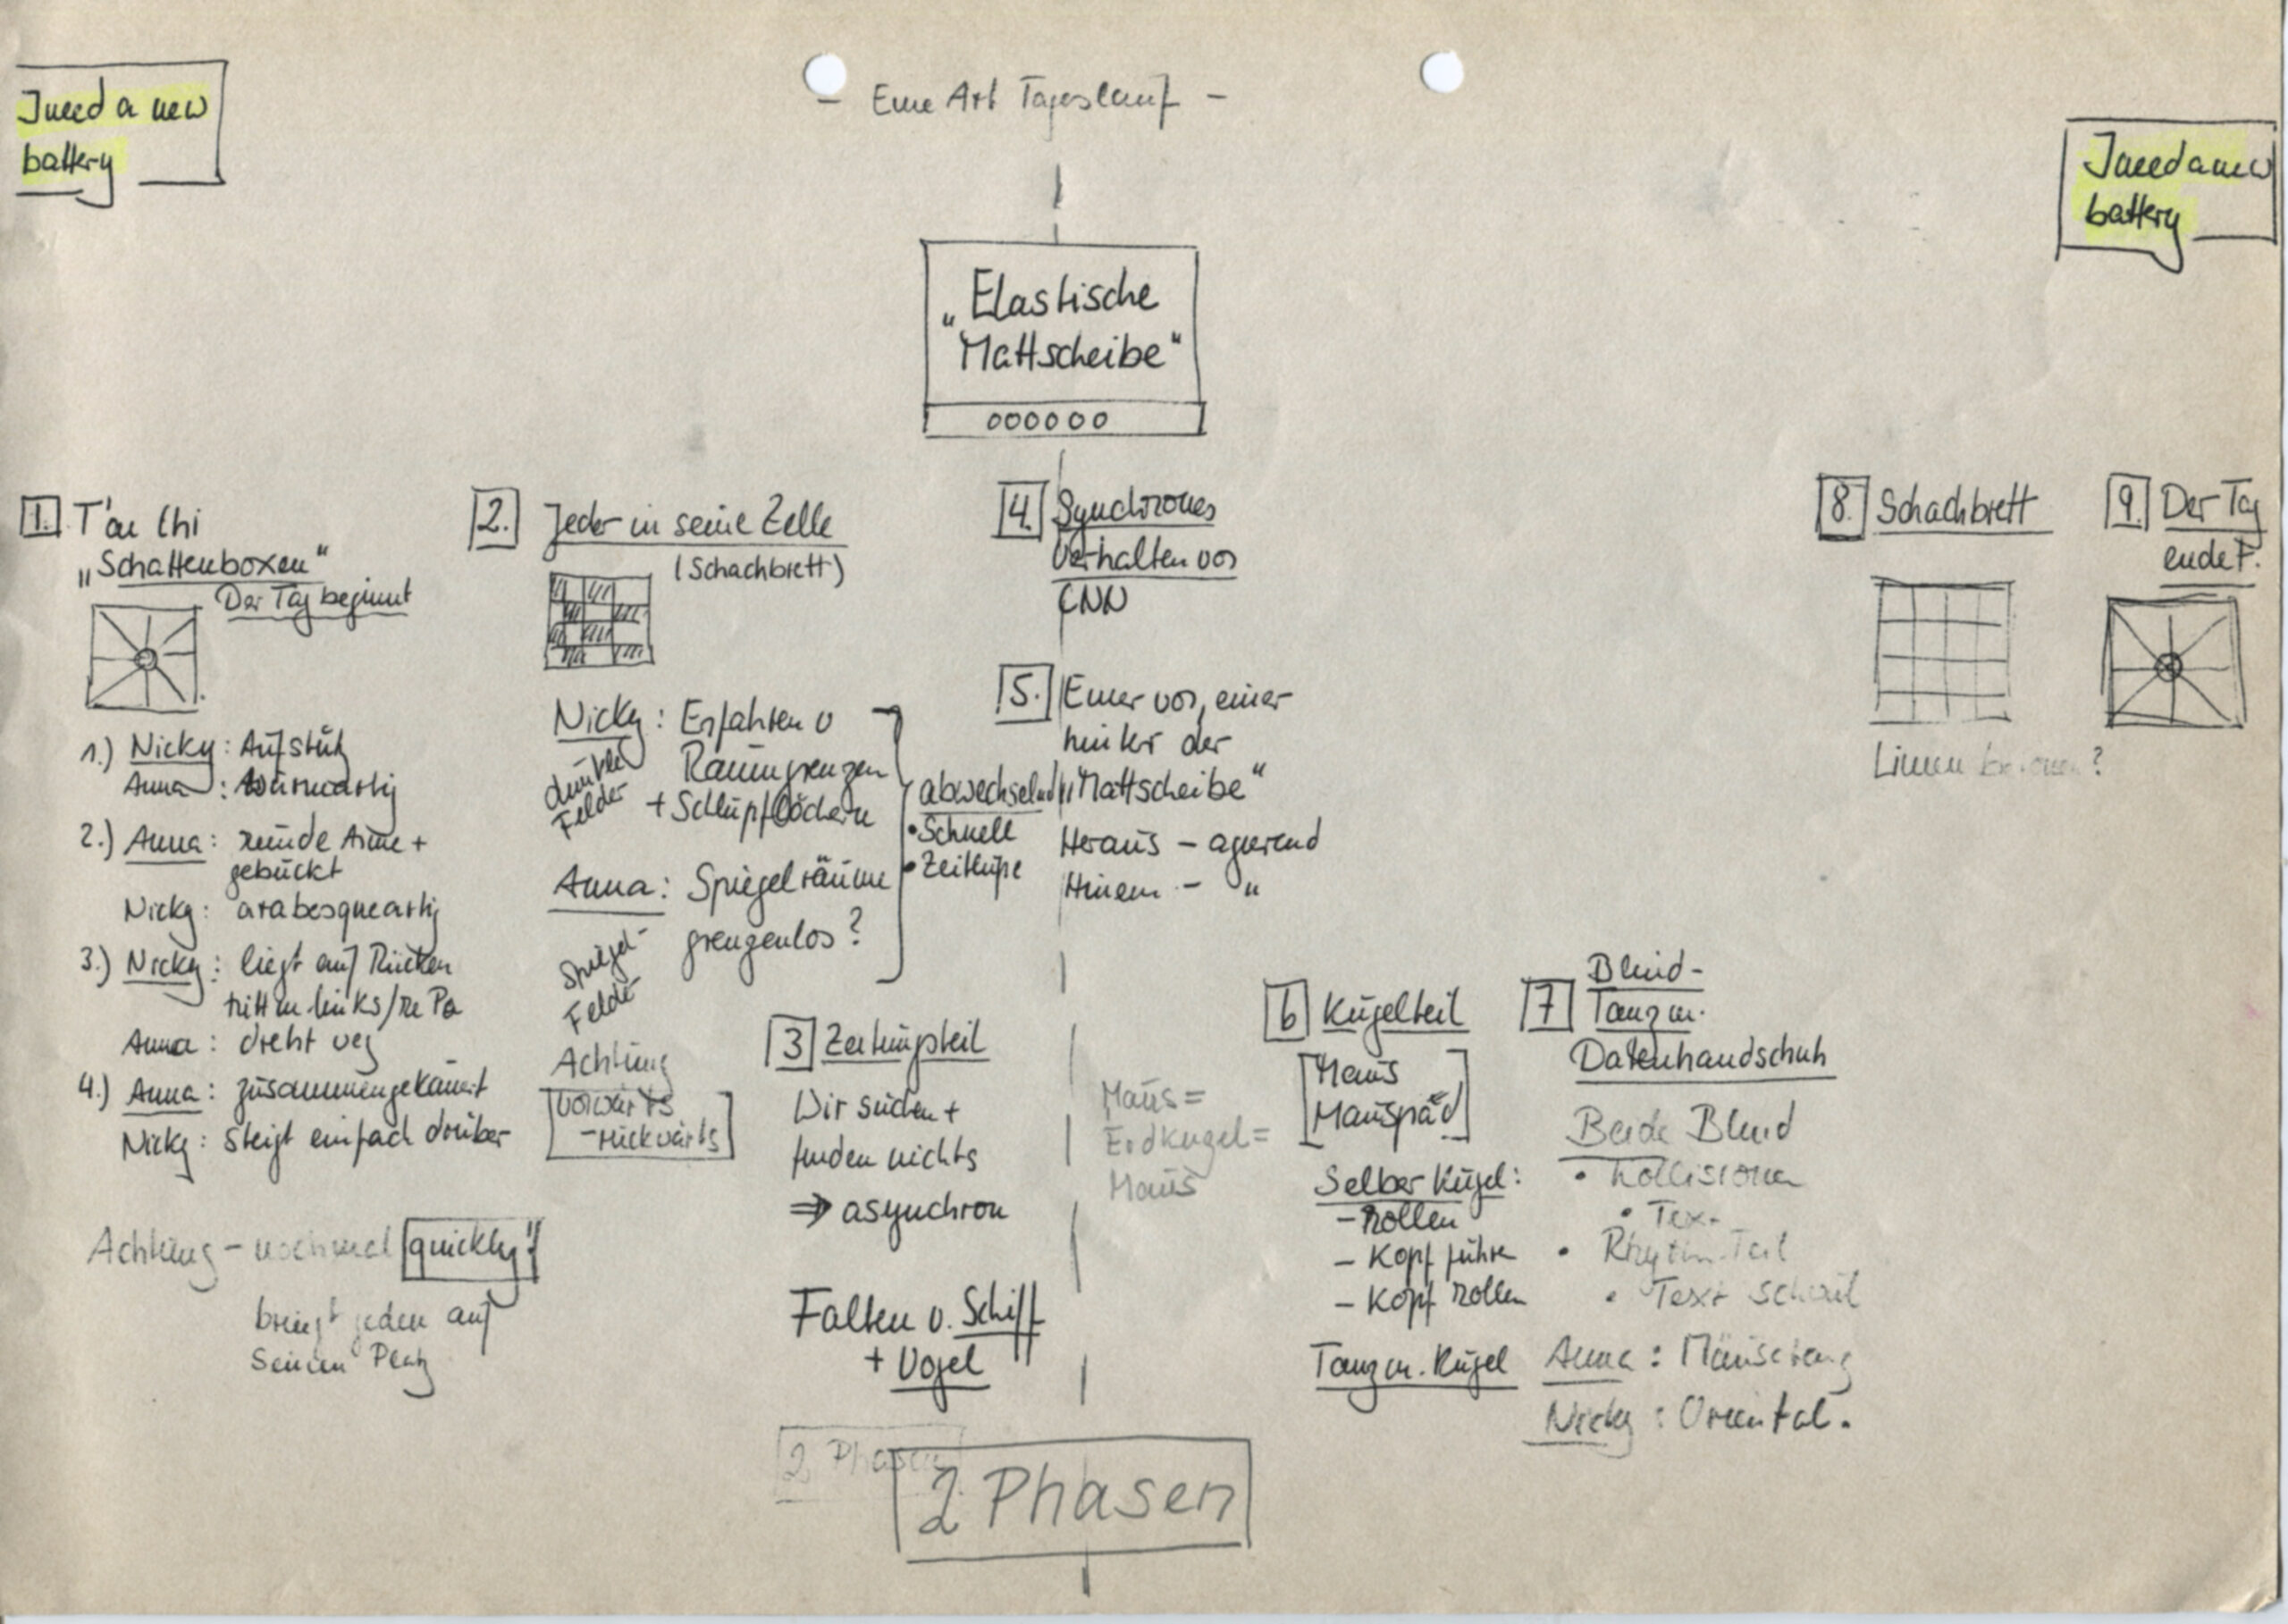 I need a new
battery
- Eine Art Tageslauf -
I need a new
battery
„Elastische
Mattscheibe"
1. T'ai Chi
„Schattenboxen"
Der Tag beginnt
1.) Nicky: Aufstütz
Anna: wurmartig
2.) Anna: runde Arme +
gebückt
Nicky: arabesqueartig
3.) Nicky: liegt auf Rücken
links/re
Anna: dreht weg
4.) Anna: zusammengekauert
Nicky: steigt einfach drüber
Achtung - nochmal quickly!
bringt jeden auf
seinen Platz
2. Jeder in seine Zelle
(Schachbrett)
Nicky: Erfahren v
Raumgrenzen
+ Schlupflöchern
dunkle
Felder
Anna: Spiegelräume
grenzenlos?
Spiegel-
Felder
abwechselnd
• Schnell
• Zeitlupe
Achtung
vorwärts
- rückwärts
3 Zeitungsteil
Wir suchen +
finden nichts
⇒ asynchron
Falten v. Schiff
+ Vogel
4. Synchrones
Verhalten vor
CNN
5. Einer vor, einer
hinter der
„Mattscheibe"
Heraus - agierend
Hinein - "
Maus =
Erdkugel =
Maus
6 Kugelteil
Maus
Mauspad
Selber Kugel:
- Rollen
- Kopf führe
- Kopf rollen
Tanz m. Kugel
7 Blind-
Tanz m.
Datenhandschuh
Beide Blind
• Kollisionen
• Text
• Rhythm. Teil
• Text
Anna: Mäusetanz
Nicky: Oriental.
8. Schachbrett
Linien ?
9. Der Tag
endet.
2 Phasen
2 Phasen